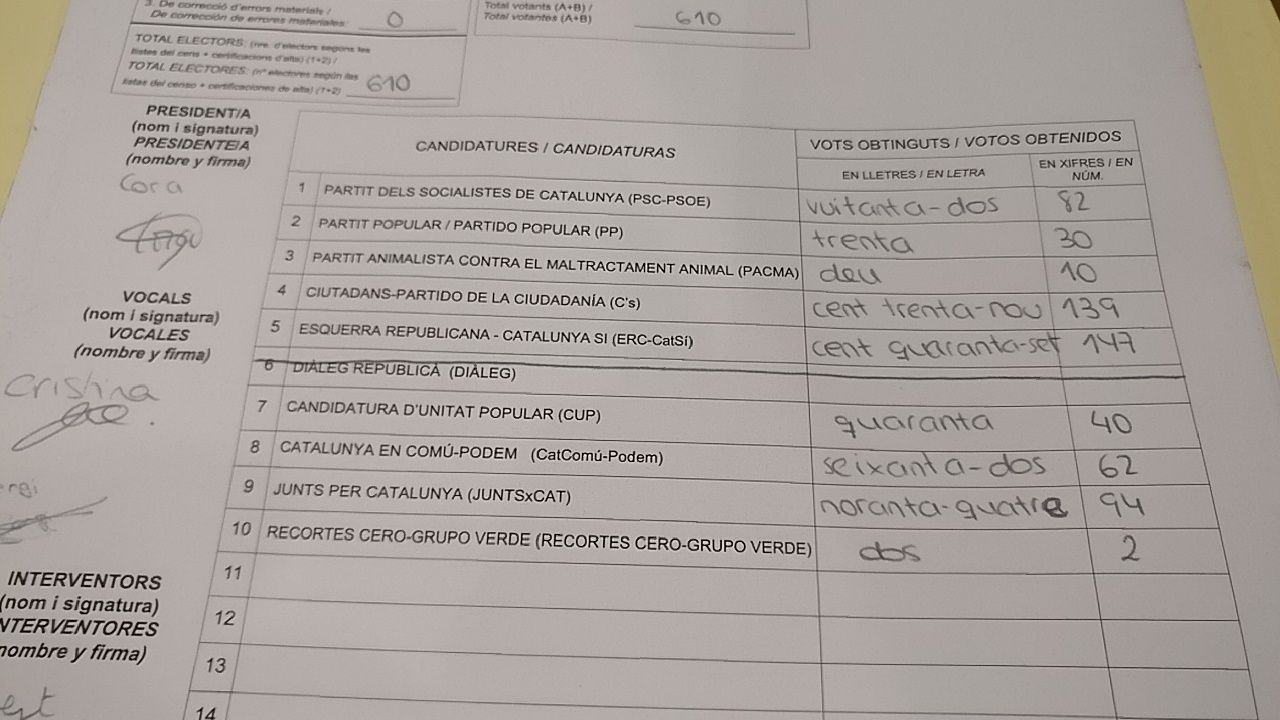 3. De correcció d'errors materials /
De corrección de errores materiales: 0
Total votants (A+B) /
Total votantes (A+B) 610
TOTAL ELECTORS: (nre. d'electors segons les
llistes del cens + certificacions d'alta) (1+2) /
TOTAL ELECTORES: (nº electores según las
listas del censo + certificaciones de alta) (1+2) 610
PRESIDENT/A
(nom i signatura)
PRESIDENTE/A
(nombre y firma)
Cora
VOCALS
(nom i signatura)
VOCALES
(nombre y firma)
Cristina
INTERVENTORS
(nom i signatura)
NTERVENTORES
nombre y firma)
CANDIDATURES / CANDIDATURAS
VOTS OBTINGUTS / VOTOS OBTENIDOS
EN LLETRES / EN LETRA
EN XIFRES / EN
NÚM.
1 PARTIT DELS SOCIALISTES DE CATALUNYA (PSC-PSOE) vuitanta-dos 82
2 PARTIT POPULAR / PARTIDO POPULAR (PP) trenta 30
3 PARTIT ANIMALISTA CONTRA EL MALTRACTAMENT ANIMAL (PACMA) deu 10
4 CIUTADANS-PARTIDO DE LA CIUDADANÍA (C's) cent trenta-nou 139
5 ESQUERRA REPUBLICANA - CATALUNYA SI (ERC-CatSí) cent quaranta-set 147
6 DIÀLEG REPUBLICÀ (DIÀLEG)
7 CANDIDATURA D'UNITAT POPULAR (CUP) quaranta 40
8 CATALUNYA EN COMÚ-PODEM (CatComú-Podem) seixanta-dos 62
9 JUNTS PER CATALUNYA (JUNTSxCAT) noranta-quatre 94
10 RECORTES CERO-GRUPO VERDE (RECORTES CERO-GRUPO VERDE) dos 2
11
12
13
14